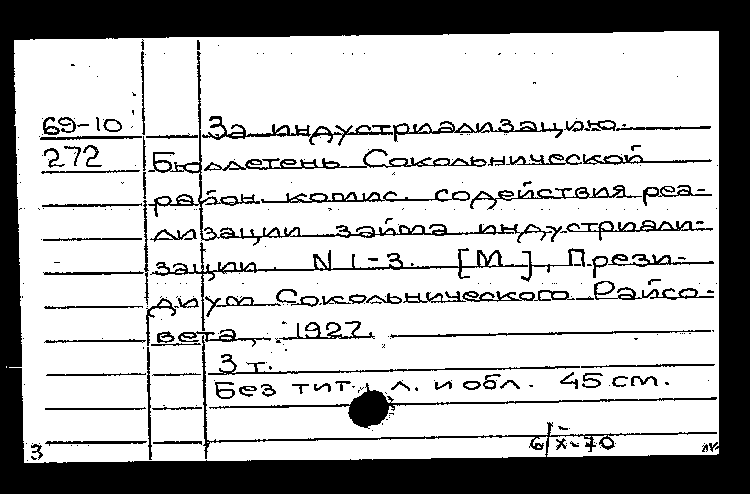 69-10 За индустриализацию.
272 Бюллетень Сокольнической
район. комис. содействия реа-
лизации займа индустриали-
зации. N 1-3. [М.], Прези-
диум Сокольнического Райсо-
вета, 1927.
3 т.
Без тит. л. и обл. 45 cm.
6/X-70
3